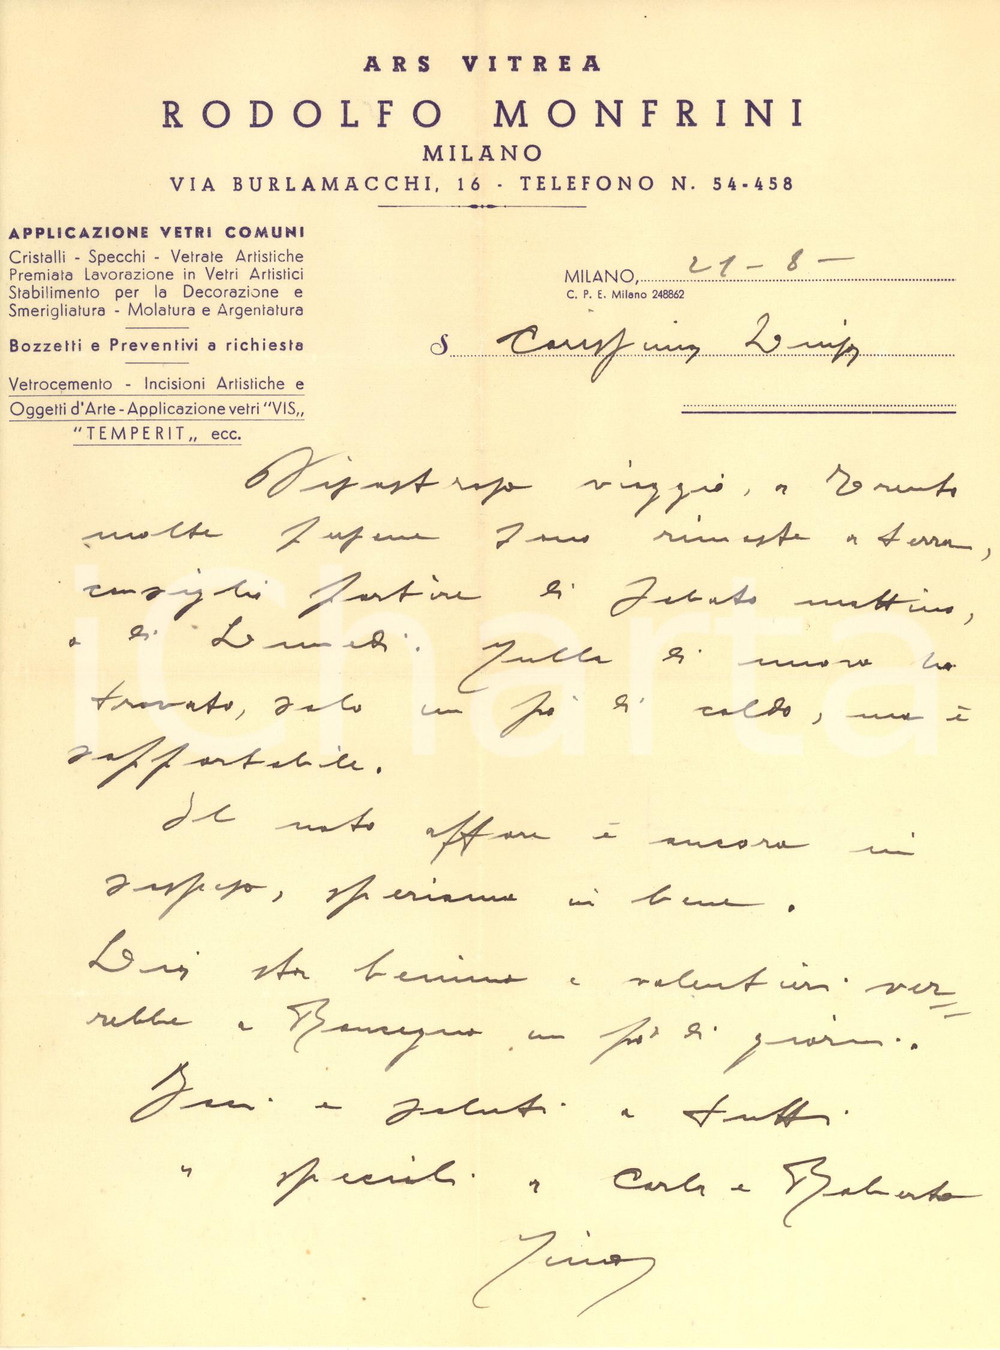 ARS VITREA
RODOLFO MONFRINI
MILANO
VIA BURLAMACCHI, 16 - TELEFONO N. 54-458
APPLICAZIONE VETRI COMUNI
Cristalli - Specchi - Vetrate Artistiche
Premiata Lavorazione in Vetri Artistici
Stabilimento per la Decorazione e
Smerigliatura - Molatura e Argentatura
Bozzetti e Preventivi a richiesta
Vetrocemento - Incisioni Artistiche e
Oggetti d'Arte - Applicazione vetri "VIS„
"TEMPERIT„ ecc.
MILANO, 21 - 8 -
C. P. E. Milano 248862
S
Disastroso viaggio, a Trento
molte persone sono rimaste a terra,
consiglio partire di Sabato mattina,
o di Lunedì. Nulla di nuovo ho
trovato, solo un pò di caldo, ma è
sopportabile.
Il noto affare è ancora in
sospeso, speriamo in bene.
sta benino e volentieri ver=
rebbe a Roncegno un pò di giorni.
Baci e saluti a tutti
" speciali a Carla e Roberto
iCharta